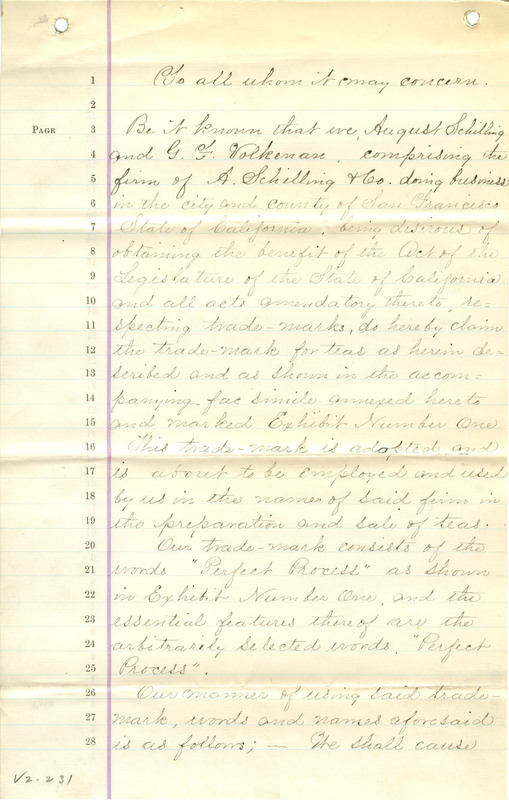 1 To all whom it may concern.
2
PAGE 3 Be it known that we, August Schilling
4 and G. F. Volkenan, comprising the
5 firm of A. Schilling & Co. doing business
6 in the city and county of San Francisco
7 State of California, being desirous of
8 obtaining the benefit of the Act of the
9 Legislature of the State of California
10 and all acts amendatory thereto, re=
11 specting trade-marks, do hereby claim
12 the trade-mark for teas as herein de=
13 scribed and as shown in the accom=
14 panying fac simile annexed hereto
15 and marked Exhibit Number One
16 This trade-mark is adopted and
17 is about to be employed and used
18 by us in the name of said firm in
19 the preparation and sale of teas.
20 Our trade-mark consists of the
21 words "Perfect Process" as shown
22 in Exhibit Number One, and the
23 essential features thereof are the
24 arbitrarily selected words, "Perfect
25 Process".
26 Our manner of using said trade-
27 mark, words and names aforesaid
28 is as follows; — We shall cause
V2-231